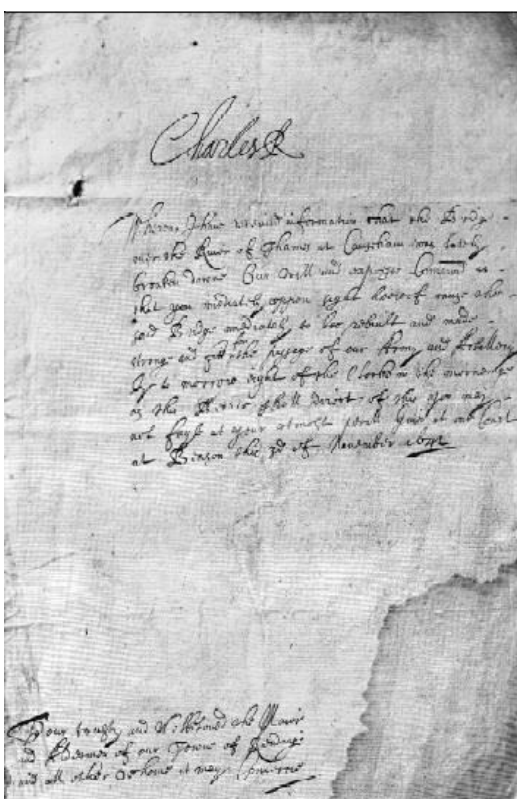 Charles R
Whereas I have receaved information that the Bridge
over the River of Thames at Causeham was lately
broaken downe Our Will and expresse Comaund is
that you imediately uppon sight heereof cause the
said Bridge imediately to bee rebuilt and made
strong and fitt for the passage of our Army and Artillery
by to morrow eight of the Clocke in the morneinge
as the shall direct of this you may
not fayle at your utmost perill Given at our Court
at Benson this 3d of November 1642
To our trusty and Wellbeloved the Maior
and Aldermen of our Towne of Reding
and all other whome it may Concerne